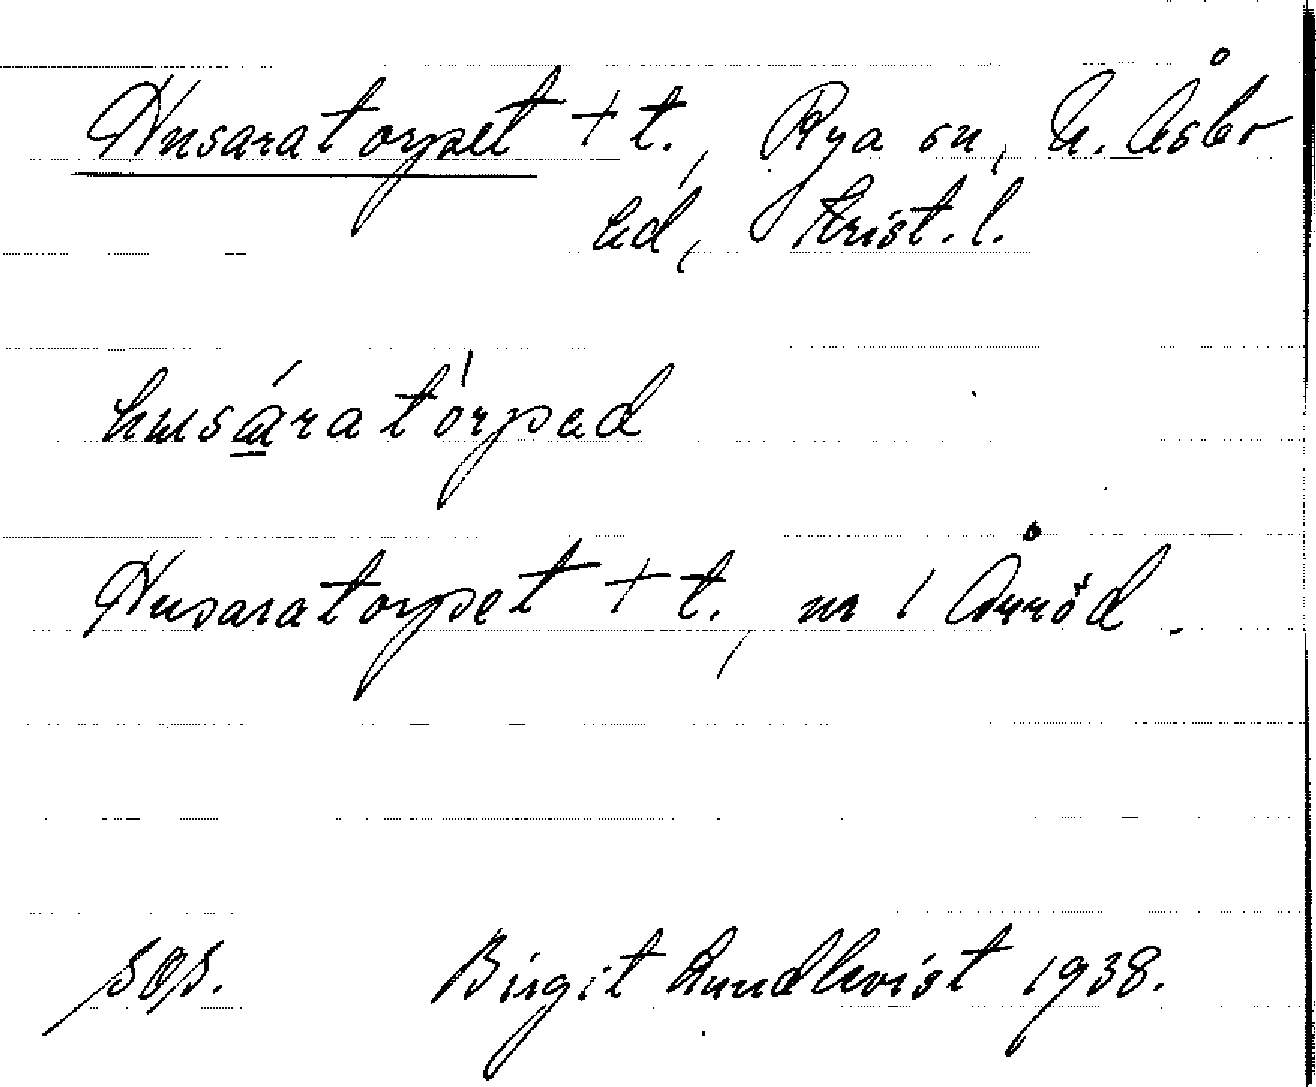 Husaratorpet + t., Rya sn, N. Åsbo
hd, Krist. l.
husáratórpad
Husaratorpet + t., nr 1 Åveröd.
sos. Birgit Lundkvist 1938.